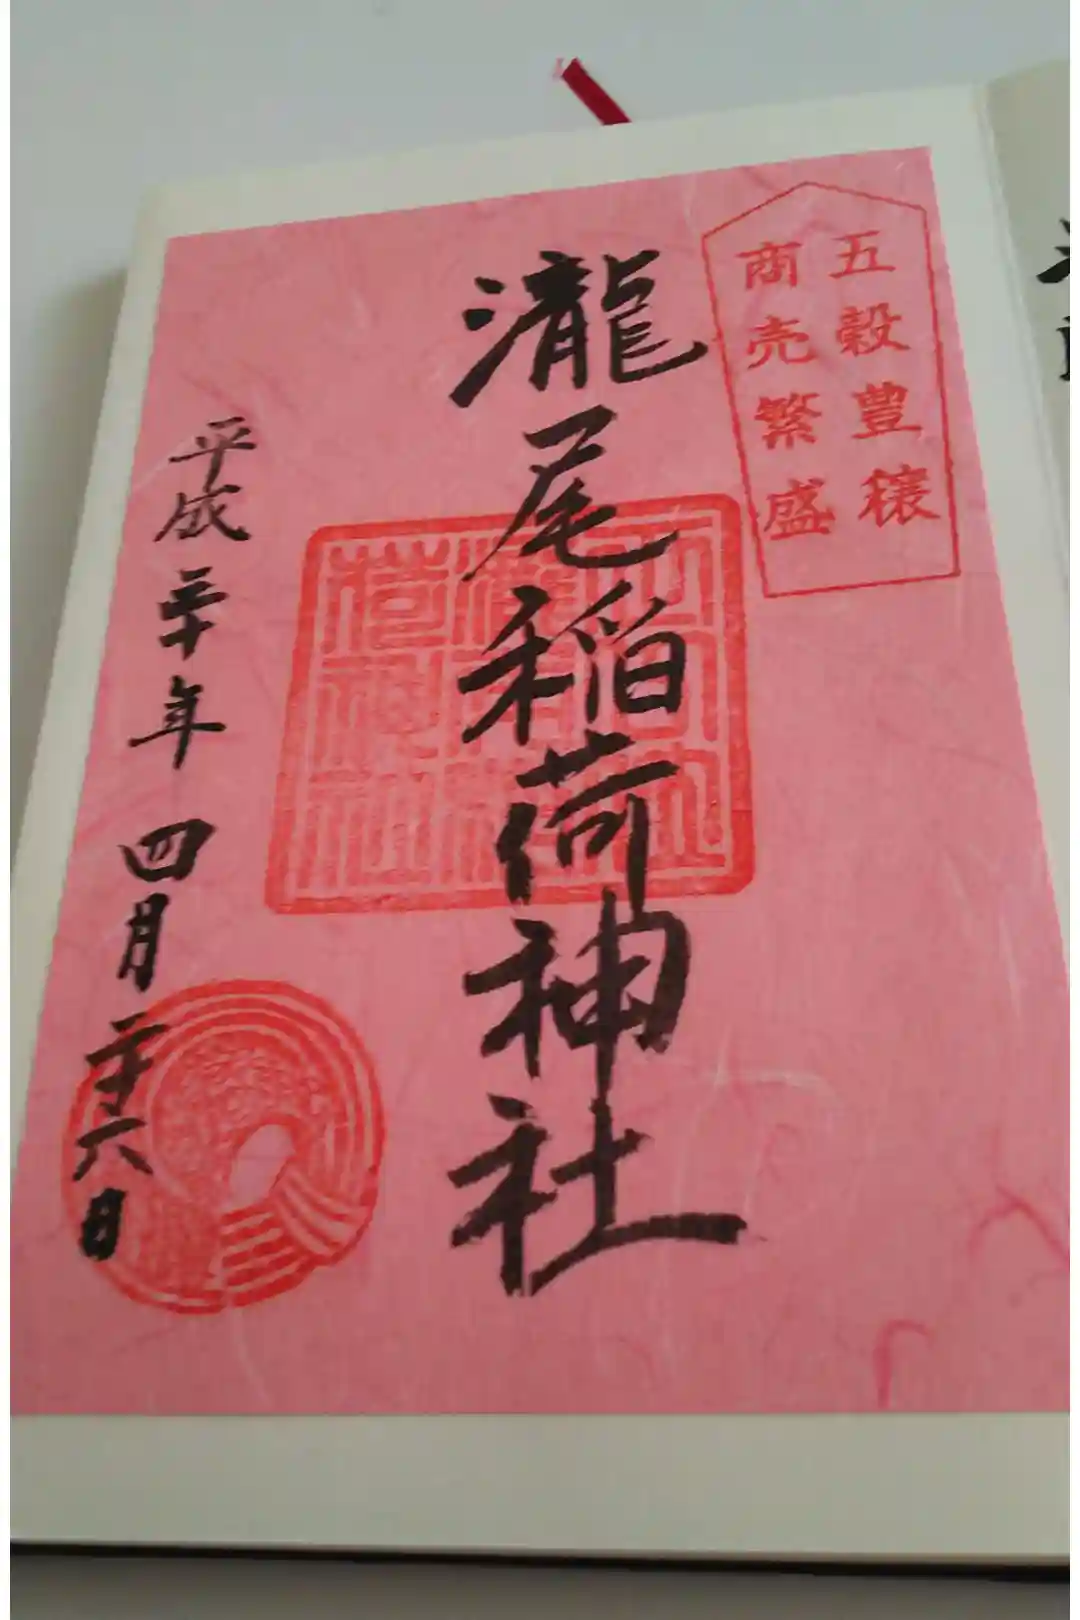 五穀豊穣
商売繁盛
瀧尾稲荷神社
平成三十年四月二十六日